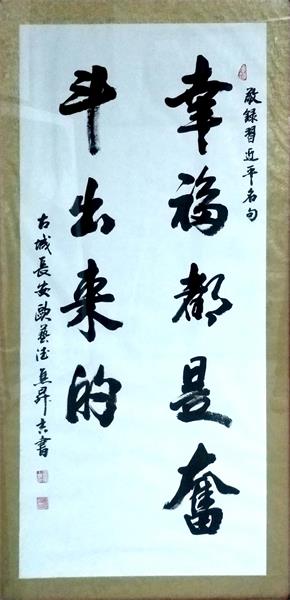 敬録習近平名句
幸福都是奮
斗出来的
古城長安歐藝注焦昇吉書